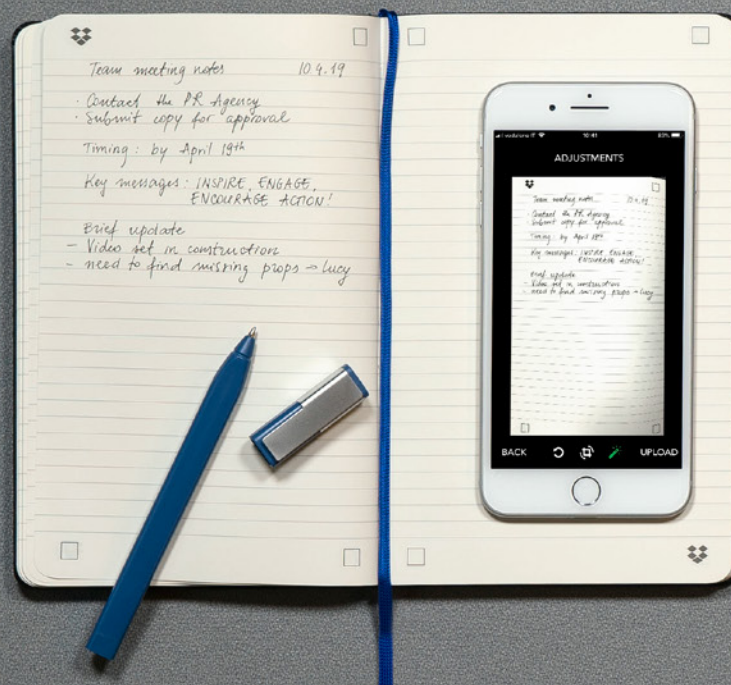 Team meeting notes 10.4.19
· Contact the PR Agency
· Submit copy for approval
Timing : by April 19th
Key messages : INSPIRE, ENGAGE,
ENCOURAGE ACTION!
Brief update
– Video set in construction
– need to find missing props → Lucy
vodafone IT 10:41
ADJUSTMENTS
Team meeting notes 10.4.19
· Contact the PR Agency
· Submit copy for approval
Timing : by April 19th
Key messages : INSPIRE, ENGAGE,
ENCOURAGE ACTION!
Brief update
– Video set in construction
– need to find missing props → Lucy
BACK UPLOAD